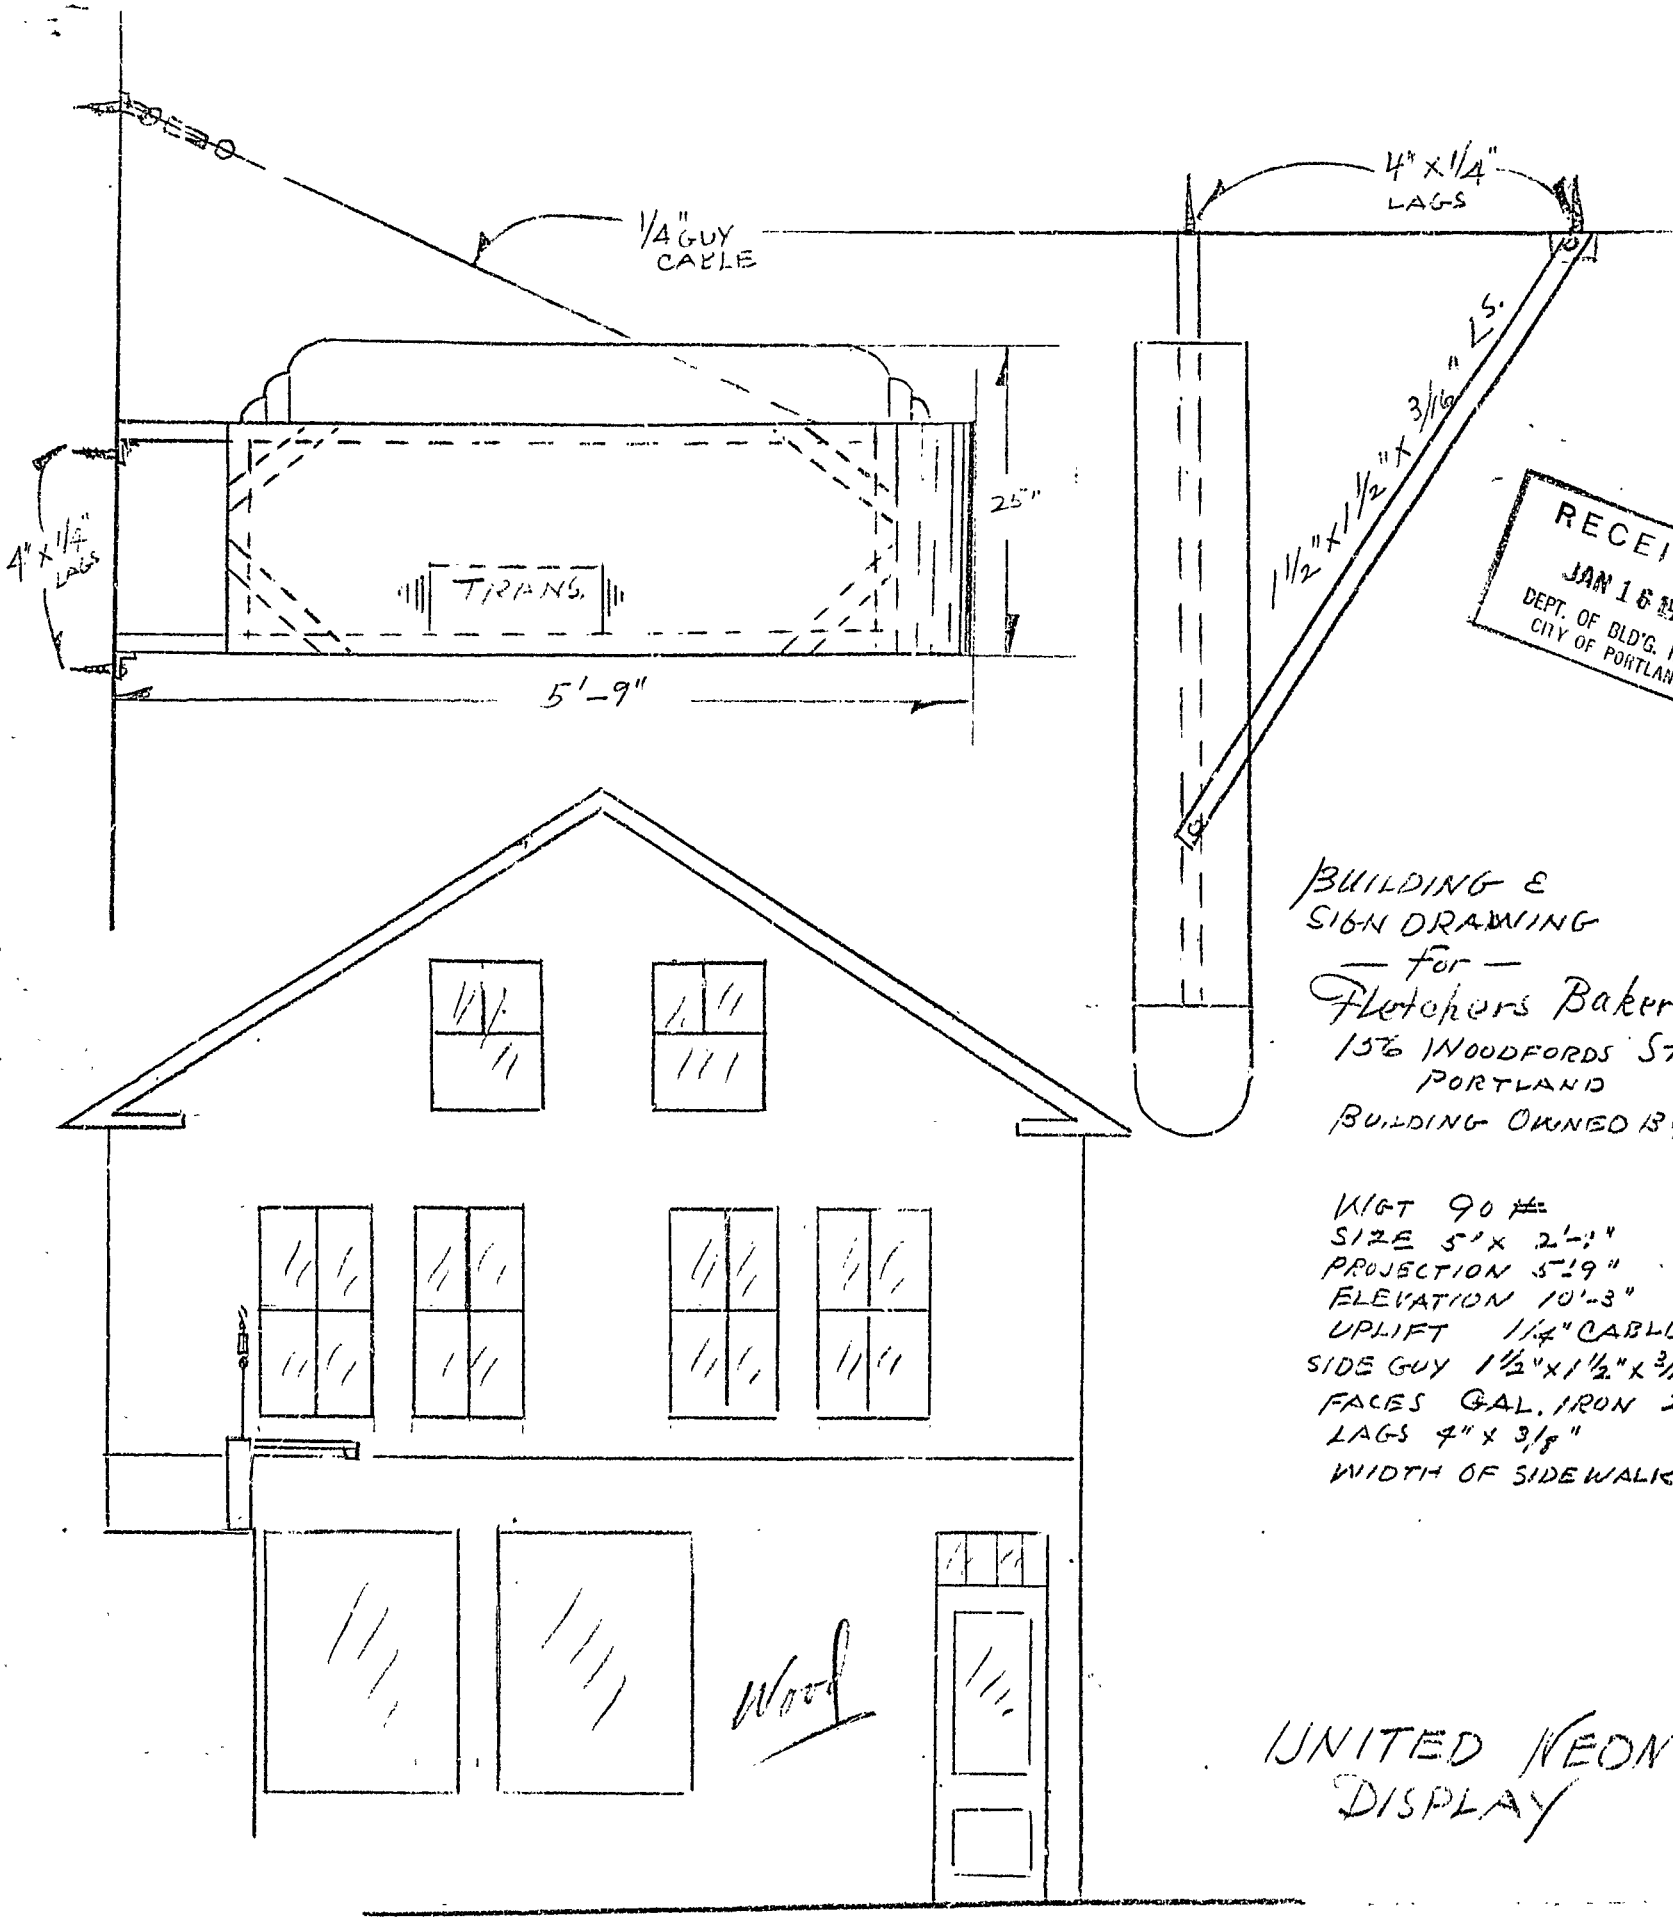 4" x 1/4"
LAGS
1/4" GUY
CABLE
1 1/2" x 1 1/2" x 3/16" Ls.
25"
4" x 1/4"
LAGS
TRANS.
5'-9"
RECEI
JAN 16
DEPT. OF BLD'G.
CITY OF PORTLAN
BUILDING &
SIGN DRAWING
— For —
Fletchers Baker
156 WOODFORDS ST
PORTLAND
BUILDING OWNED B
WGT 90 #
SIZE 5' x 2'-1"
PROJECTION 5'-9"
ELEVATION 10'-3"
UPLIFT 1/4" CABL
SIDE GUY 1 1/2" x 1 1/2" x 3/
FACES GAL. IRON 2
LAGS 4" x 3/8"
WIDTH OF SIDEWALK
Wood
UNITED NEON
DISPLAY